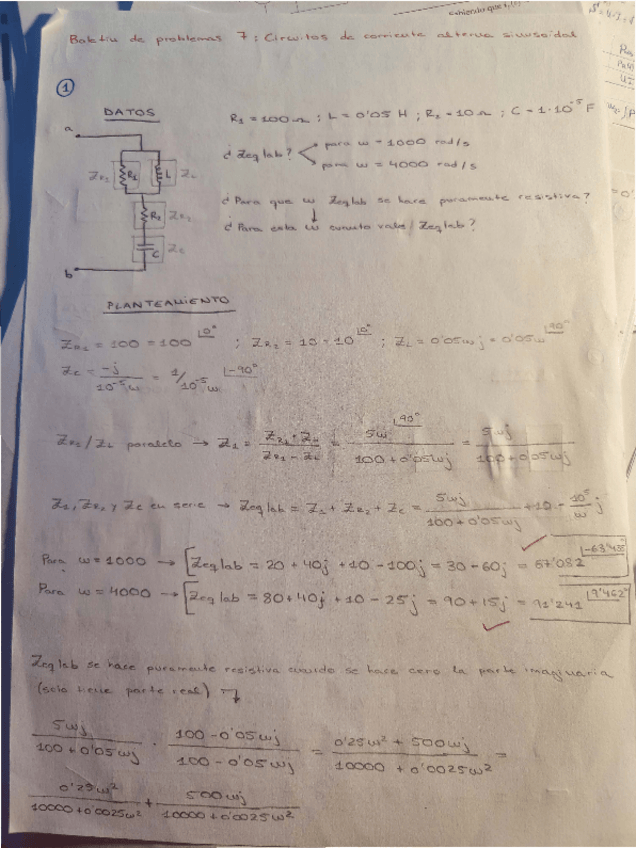 cabiendo que
Boletín de problemas 7: Circuitos de corriente alterna sinusoidal
1
DATOS
R₁ = 100 Ω ; L = 0'05 H ; R₂ = 10 Ω ; C = 1·10⁻⁵ F
a
¿Zeq|ab? para ω = 1000 rad/s
para ω = 4000 rad/s
Z_R₁ R₁ L Z_L
¿Para que ω Zeq|ab se hace puramente resistiva?
R₂ Z_R₂
¿Para esta ω cuanto vale Zeq|ab?
C Z_C
b
PLANTEAMIENTO
Z_R₁ = 100 = 100 |0° ; Z_R₂ = 10 = 10 |0° ; Z_L = 0'05ωj = 0'05ω |90°
Z_C = -j/10⁻⁵ω = 1/10⁻⁵ω |-90°
Z_R₁/Z_L paralelo → Z₁ = Z_R₁·Z_L/Z_R₁-Z_L = 5ω |90°/100+0'05ωj = 5ωj/100+0'05ωj
Z₁, Z_R₂ y Z_C en serie → Zeq|ab = Z₁ + Z_R₂ + Z_C = 5ωj/100+0'05ωj + 10 - 10⁵/ω j
Para ω = 1000 → [Zeq|ab = 20 + 40j + 10 - 100j = 30 - 60j = 67'082 |-63'435°
Para ω = 4000 → [Zeq|ab = 80 + 40j + 10 - 25j = 90 + 15j = 91'241 |9'462°
Zeq|ab se hace puramente resistiva cuando se hace cero la parte imaginaria
(solo tiene parte real)
5ωj/100+0'05ωj · 100-0'05ωj/100-0'05ωj = 0'25ω² + 500ωj/10000 + 0'0025ω² =
0'25ω²/10000+0'0025ω² + 500ωj/10000+0'0025ω²